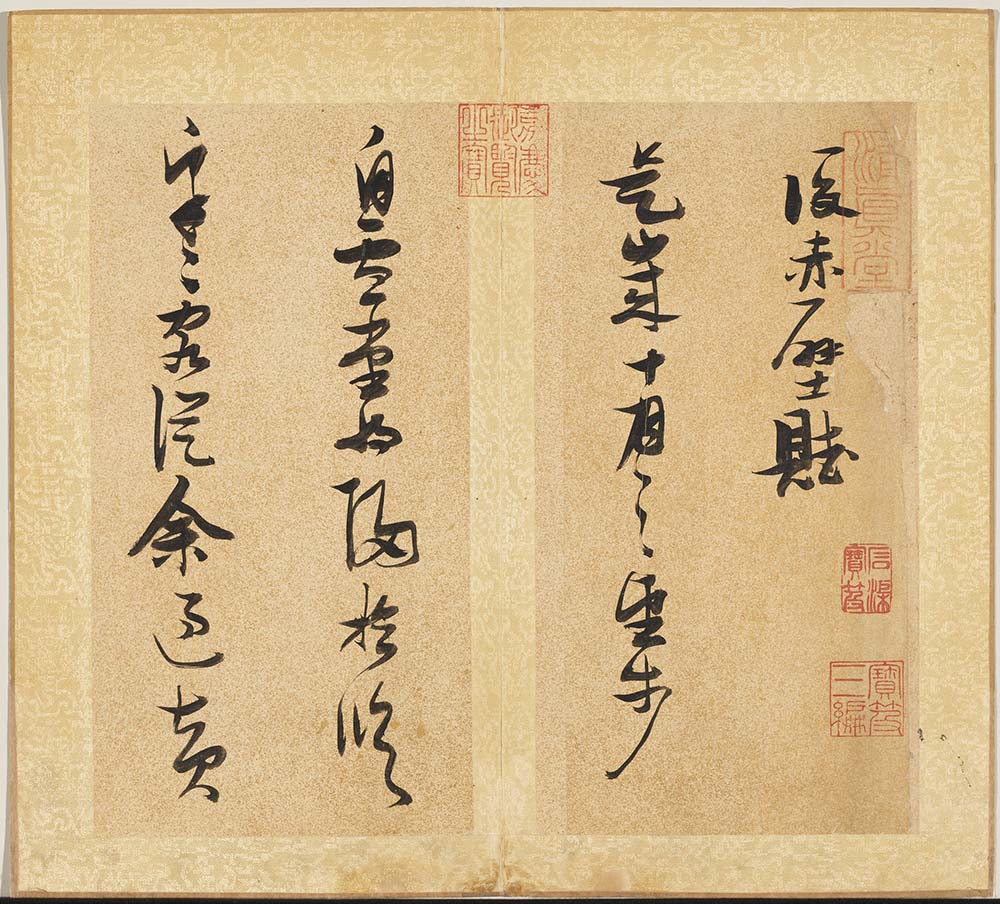 後赤壁賦
是歲十月之望步
自雪堂將歸於臨
皋二客從余過黃
石渠寶笈
寶笈三編
嘉慶御覽之寶